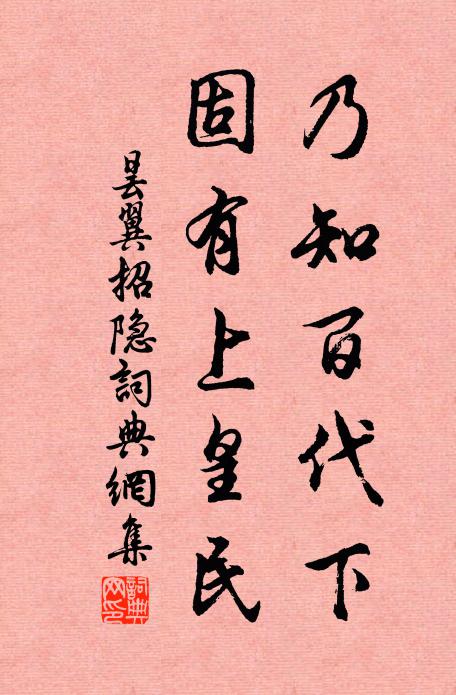 乃知百代下
固有上皇民
昙翼招隐詞典網集
詞典網印